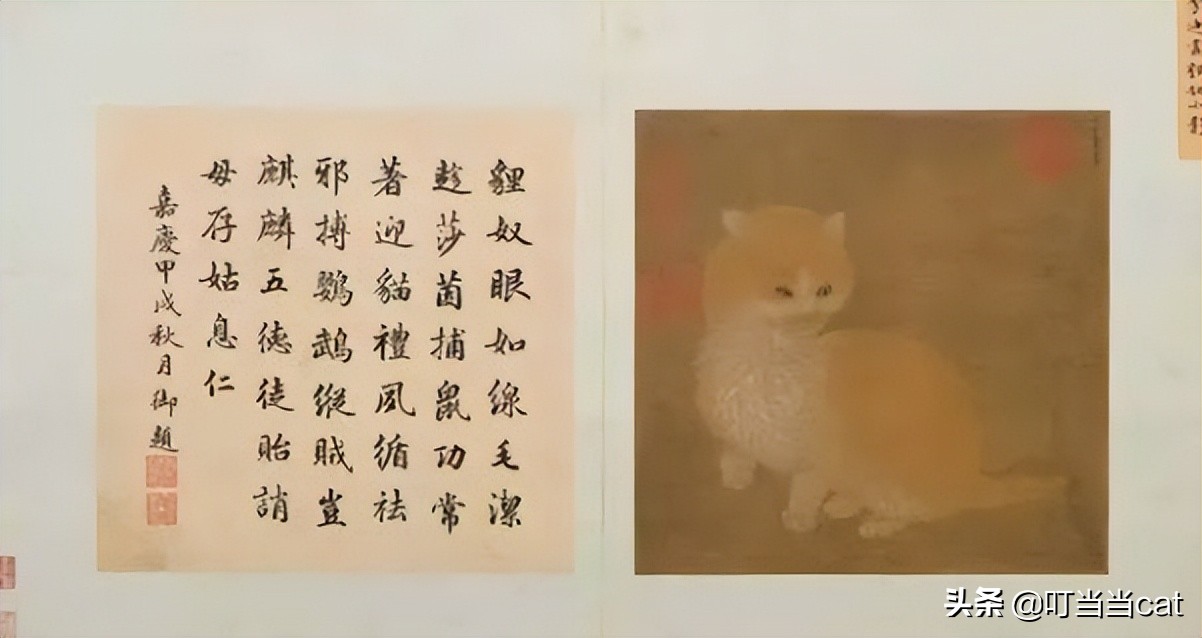 貍奴眼如線毛潔
趁莎茵捕鼠功常
著迎貓禮夙循祛
邪搏鸚鵡縱賊豈
麒麟五德徒貽誚
毋存姑息仁
嘉慶甲戌秋月御題
头条 @叮当当cat